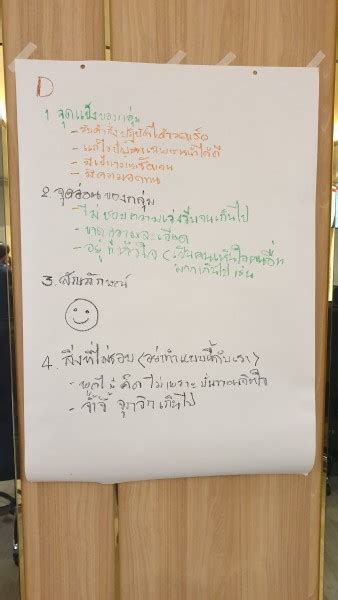 D
1. จุดแข็งของกลุ่ม
- รับคำสั่ง ปฏิบัติได้รวดเร็ว
- แก้ไขปัญหาเฉพาะหน้าได้ดี
- มีความอดทน
2. จุดอ่อนของกลุ่ม
- ไม่ชอบความเร่งรีบจนเกินไป
- ขาดความละเอียด
- อยู่ที่หัวใจ (เป็นคนเห็นใจคนอื่น
มากเกินไป เช่น
3. สัญลักษณ์
4. สิ่งที่ไม่ชอบ (อย่าทำแบบนี้กับเรา)
- พูดไม่คิด ไม่เพราะ
- จู้จี้ จุกจิกเกินไป